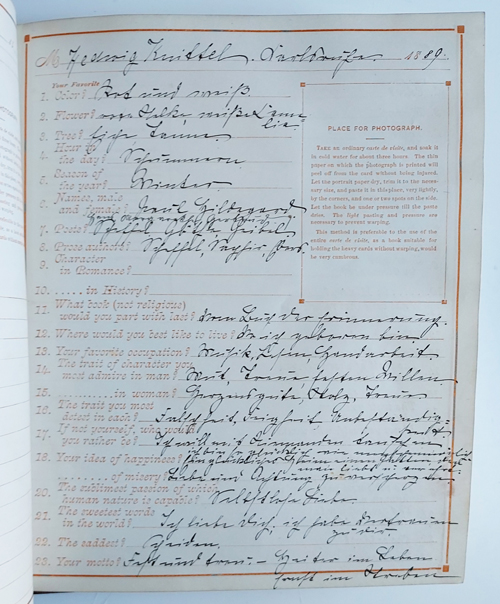 M Hedwig Knittel. Karlsruhe. 1889.
Your Favorite
1. Color? Rot und weiß.
2. Flower? Nelke, weiße
3. Tree? Eiche Tanne.
Hour in
4. the day? Schummern
Season of
5. the year? Winter
Names, male
6. and female? Paul Hildegard
7. Poets? Scheffel, Göthe, Geibel
8. Prose authors? Scheffel,
Character
9. in Romance?
10. ...... in History?
What book (not religious)
11. would you part with last? Buch der Erinnerung.
12. Where would you best like to live? Wo ich geboren bin
13. Your favorite occupation? Musik, Lesen, Handarbeit
The trait of character you
14. most admire in man? Mut, Treue, festen Willen
15. ............ in woman? Herzensgüte, Stolz, Treue
The traits you most
16. in each? Falschheit, Feigheit
If not yourself, who would
17. you rather be? Ich will mit Niemanden tauschen
18. Your idea of happiness?
........ of misery? Liebe und
The sublimest passion of which
20. human nature is capable? Selbstlose Liebe
The sweetest words
21. in the world? Ich liebe Dich, ich habe Vertrauen
zu dir.
22. The saddest? Scheiden.
23. Your motto? Fest und treu. – Heiter im Leben
ernst im Streben
PLACE FOR PHOTOGRAPH.
TAKE an ordinary carte de visite, and soak it
in cold water for about three hours. The thin
paper on which the photograph is printed will
peel off from the card without being injured.
Let the portrait paper dry, trim it to the neces-
sary size, and paste it in this place, very lightly,
by the corners, and one or two spots on the side.
Let the book be under pressure till the paste
dries. The light pasting and pressure are
necessary to prevent warping.
This method is preferable to the use of the
entire carte de visite, as a book suitable for
holding the heavy cards without warping, would
be very cumbrous.